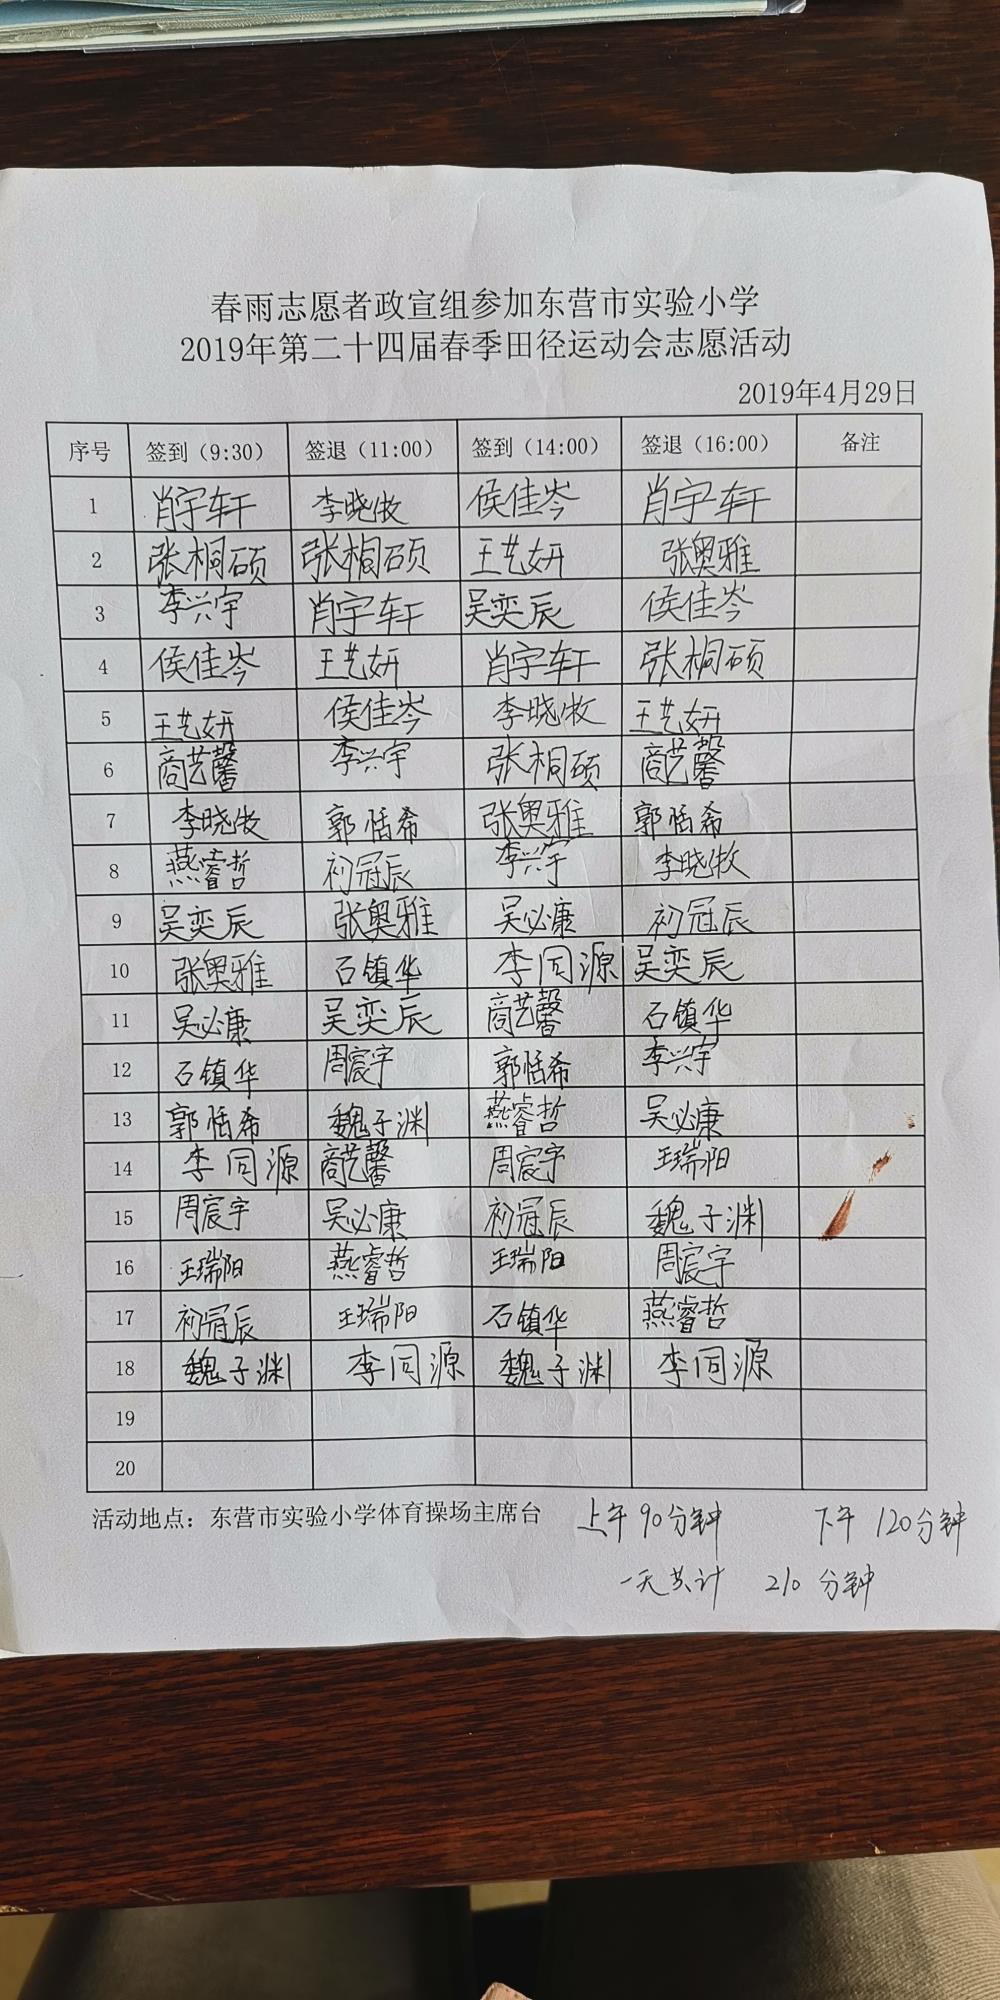 春雨志愿者政宣组参加东营市实验小学
2019年第二十四届春季田径运动会志愿活动
2019年4月29日
序号 签到（9:30） 签退（11:00） 签到（14:00） 签退（16:00） 备注
1 肖宇轩 李晓牧 侯佳岑 肖宇轩
2 张桐硕 张桐硕 王艺妍 张奥雅
3 李兴宇 肖宇轩 吴奕辰 侯佳岑
4 侯佳岑 王艺妍 肖宇轩 张桐硕
5 王艺妍 侯佳岑 李晓牧 王艺妍
6 商艺馨 李兴宇 张桐硕 商艺馨
7 李晓牧 郭恬希 张奥雅 郭恬希
8 燕睿哲 初冠辰 李兴宇 李晓牧
9 吴奕辰 张奥雅 吴必康 初冠辰
10 张奥雅 石镇华 李同源 吴奕辰
11 吴必康 吴奕辰 商艺馨 石镇华
12 石镇华 周宸宇 郭恬希 李兴宇
13 郭恬希 魏子渊 燕睿哲 吴必康
14 李同源 商艺馨 周宸宇 王瑞阳
15 周宸宇 吴必康 初冠辰 魏子渊
16 王瑞阳 燕睿哲 王瑞阳 周宸宇
17 初冠辰 王瑞阳 石镇华 燕睿哲
18 魏子渊 李同源 魏子渊 李同源
19
20
活动地点：东营市实验小学体育操场主席台 上午90分钟 下午 120分钟
一天共计 210 分钟